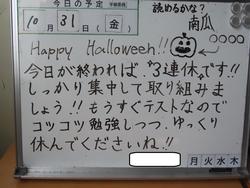 今日の予定
読めるかな?
10月31日(金)
南瓜
Happy Halloween!!
今日が終われば、3連休です!!
しっかり集中して取り組みま
しょう!! もうすぐテストなので
コツコツ勉強しつつ、ゆっくり
休んでくださいね!!
月火水木